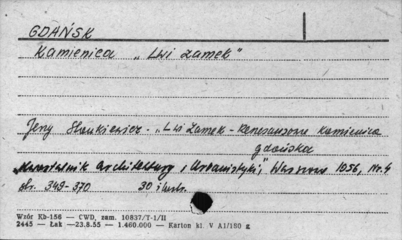 GDAŃSK
Kamienica „Lwi Zamek"
Jerzy Stankiewicz. „Lwi Zamek - Renesansowa kamienica
gdańska
Kwartalnik Architektury i Urbanistyki," Warszawa 1956, nr. 4
str. 349-370 30 ilustr.
Wzór Kb-156 — CWD, zam. 10837/T-1/II
2445 — Łak —23.8.55 — 1.460.000 — Karton kl. V A1/180 g